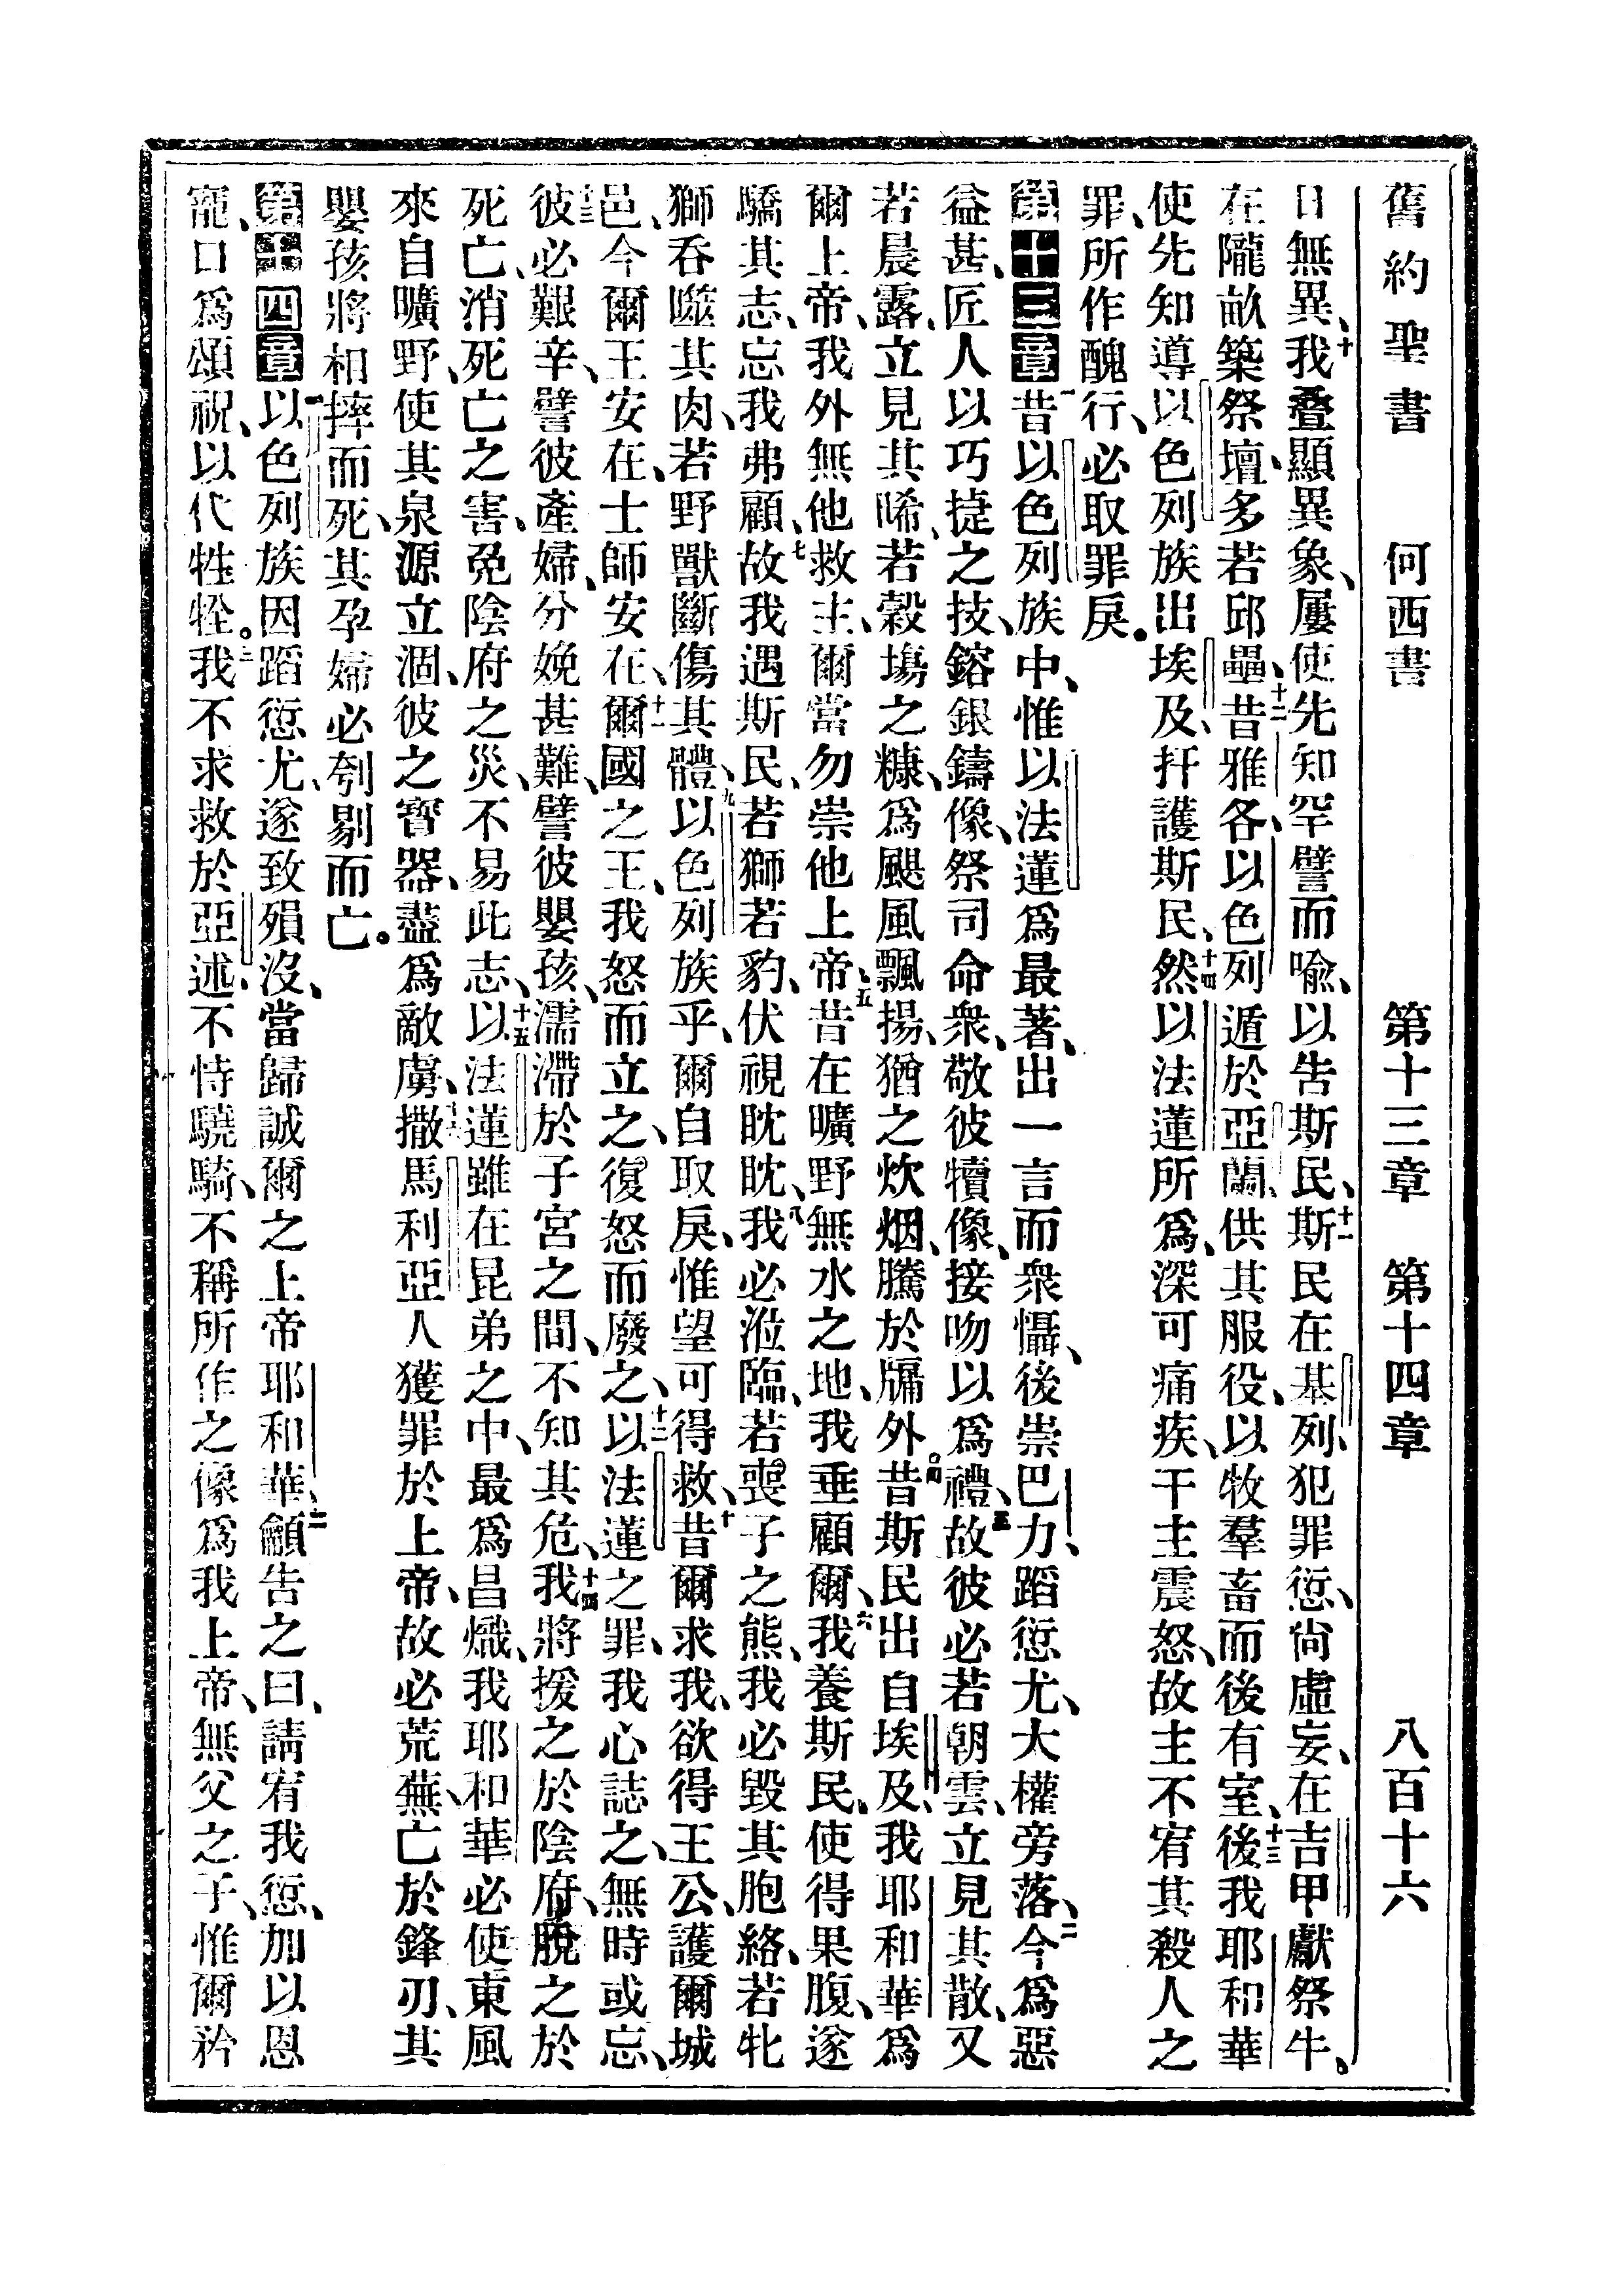 舊約聖書 何西書 第十三章 第十四章 八百十六
日無異、十我疊顯異象、屢使先知罕譬而喻、以告斯民、十一斯民在基列、犯罪愆、尙虛妄、在吉甲獻祭牛。
在隴畝築祭壇、多若邱壘、十二昔雅各、以色列遁於亞蘭、供其服役、以牧羣畜而後有室、十三後我耶和華
使先知導以色列族出埃及、扞護斯民、十四然以法蓮所爲、深可痛疾、干主震怒、故主不宥其殺人之
罪、所作醜行、必取罪戾。
第十三章一昔以色列族中、惟以法蓮爲最著、出一言而衆懾、後崇巴力、蹈愆尤、大權旁落、二今爲惡
益甚、匠人以巧捷之技、鎔銀鑄像、祭司命衆、敬彼犢像、接吻以爲禮、三故彼必若朝雲、立見其散、又
若晨露、立見其晞、若穀塲之糠、爲颶風飄揚、猶之炊烟、騰於牖外。四昔斯民出自埃及、我耶和華爲
爾上帝、我外無他救主、爾當勿崇他上帝、五昔在曠野無水之地、我垂顧爾、六我養斯民、使得果腹、遂
驕其志、忘我弗顧、七故我遇斯民、若獅若豹、伏視眈眈、八我必涖臨、若喪子之熊、我必毀其胞絡、若牝
獅吞噬其肉、若野獸斷傷其體、九以色列族乎、爾自取戾、惟望可得救、十昔爾求我、欲得王公、護爾城
邑、今爾王安在、士師安在、十一爾國之王、我怒而立之、復怒而廢之、十二以法蓮之罪、我心誌之、無時或忘、
十三彼必艱辛、譬彼產婦、分娩甚難、譬彼嬰孩、濡滯於子宮之間、不知其危、十四我將援之於陰府、脫之於
死亡、消死亡之害、免陰府之災、不易此志、十五以法蓮雖在昆弟之中、最爲昌熾、我耶和華必使東風
來自曠野、使其泉源立涸、彼之寶器、盡爲敵虜、十六撒馬利亞人獲罪於上帝、故必荒蕪、亡於鋒刃、其
嬰孩將相摔而死、其孕婦必刳剔而亡。
第十四章一以色列族因蹈愆尤、遂致殞沒、當歸誠爾之上帝耶和華、二籲告之曰、請宥我愆、加以恩
寵、口爲頌祝、以代牲牷。三我不求救於亞述、不恃驍騎、不稱所作之像爲我上帝、無父之子、惟爾矜